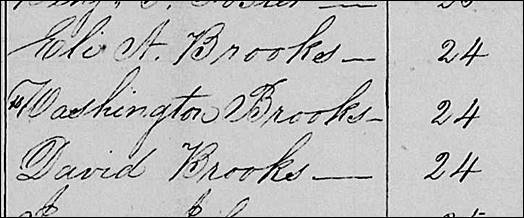 Eli A. Brooks — 24
Washington Brooks — 24
David Brooks — 24